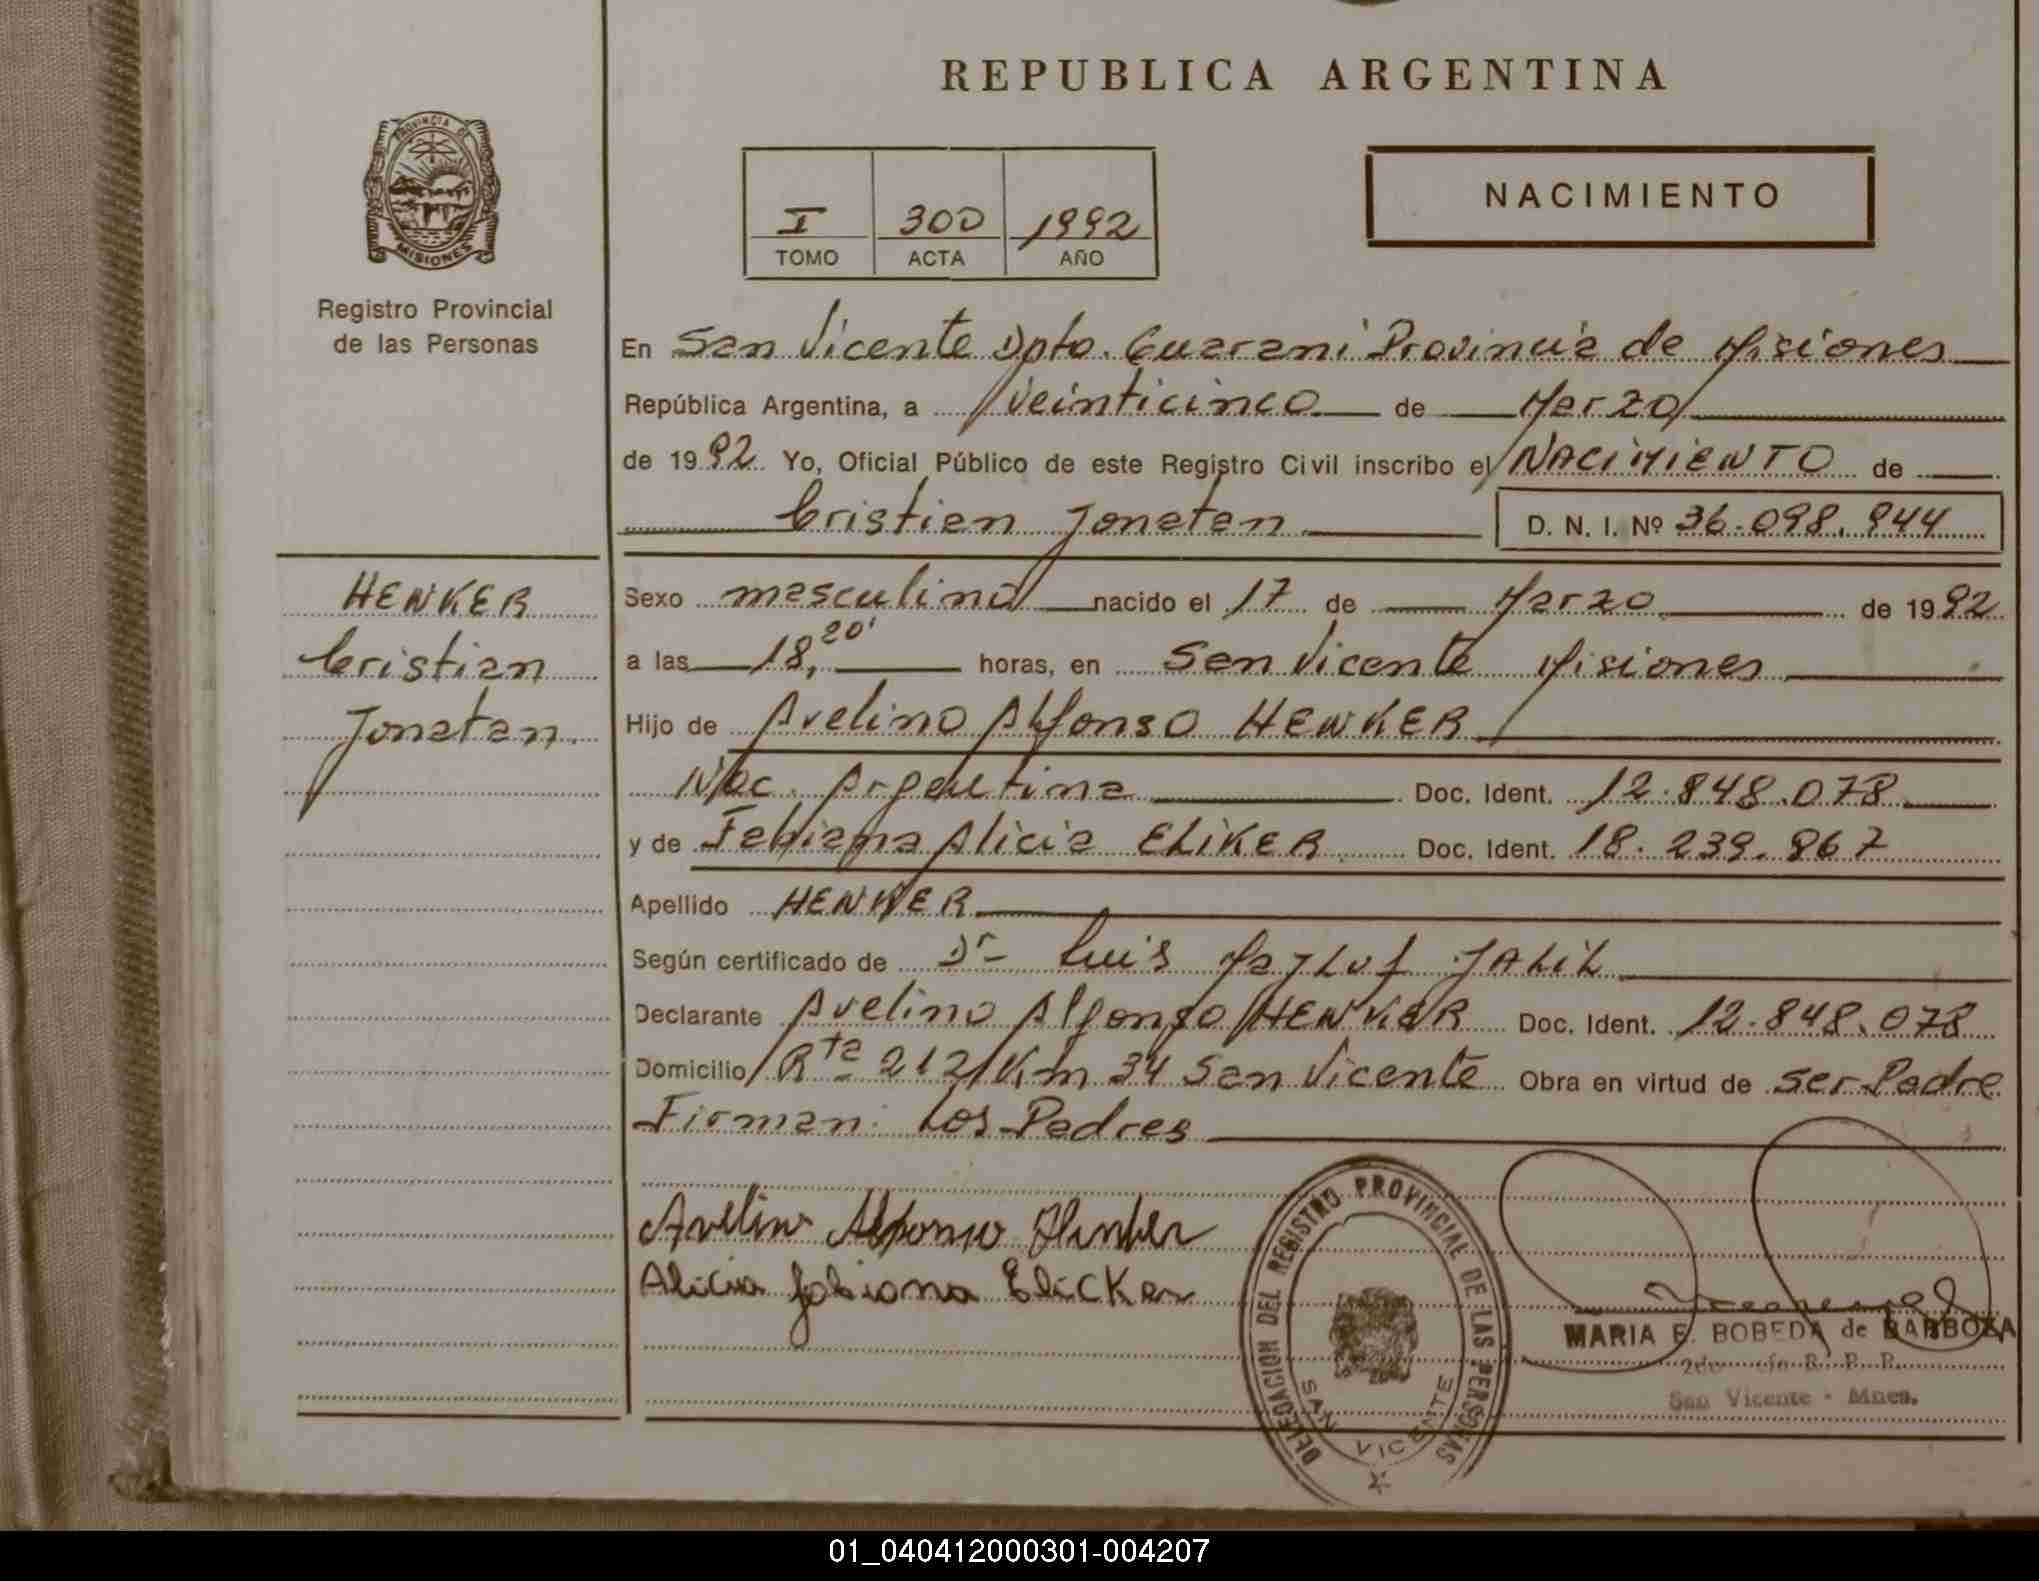 REPUBLICA ARGENTINA
PROVINCIA DE
MISIONES
Registro Provincial
de las Personas
NACIMIENTO
I 300 1992
TOMO ACTA AÑO
En San Vicente Dpto. Guarani Provincia de Misiones
República Argentina, a Veinticinco de Marzo
de 1992 Yo, Oficial Público de este Registro Civil inscribo el NACIMIENTO de
Cristian Jonatan D. N. I. Nº 36.098.944
HENKER
Cristian
Jonatan.
Sexo masculino nacido el 17 de Marzo de 1992
a las 18,20' horas, en San Vicente Misiones
Hijo de Avelino Alfonso HENKER
Nac. Argentina Doc. Ident. 12.848.078
y de Fabiana Alicia ELIKER Doc. Ident. 18.239.867
Apellido HENKER
Según certificado de Dr Luis JALIL
Declarante Avelino Alfonso HENKER Doc. Ident. 12.848.078
Domicilio Rta 212 Km 34 San Vicente Obra en virtud de ser Padre
Firman: Los Padres
Avelino Alfonso Henker
Alicia fabiana Elicker
DELEGACION DEL REGISTRO PROVINCIAL DE LAS PERSONAS
SAN VICENTE
MARIA E. BOBEDA de BARBOZA
R. P. P.
San Vicente - Mnes.
01_040412000301-004207